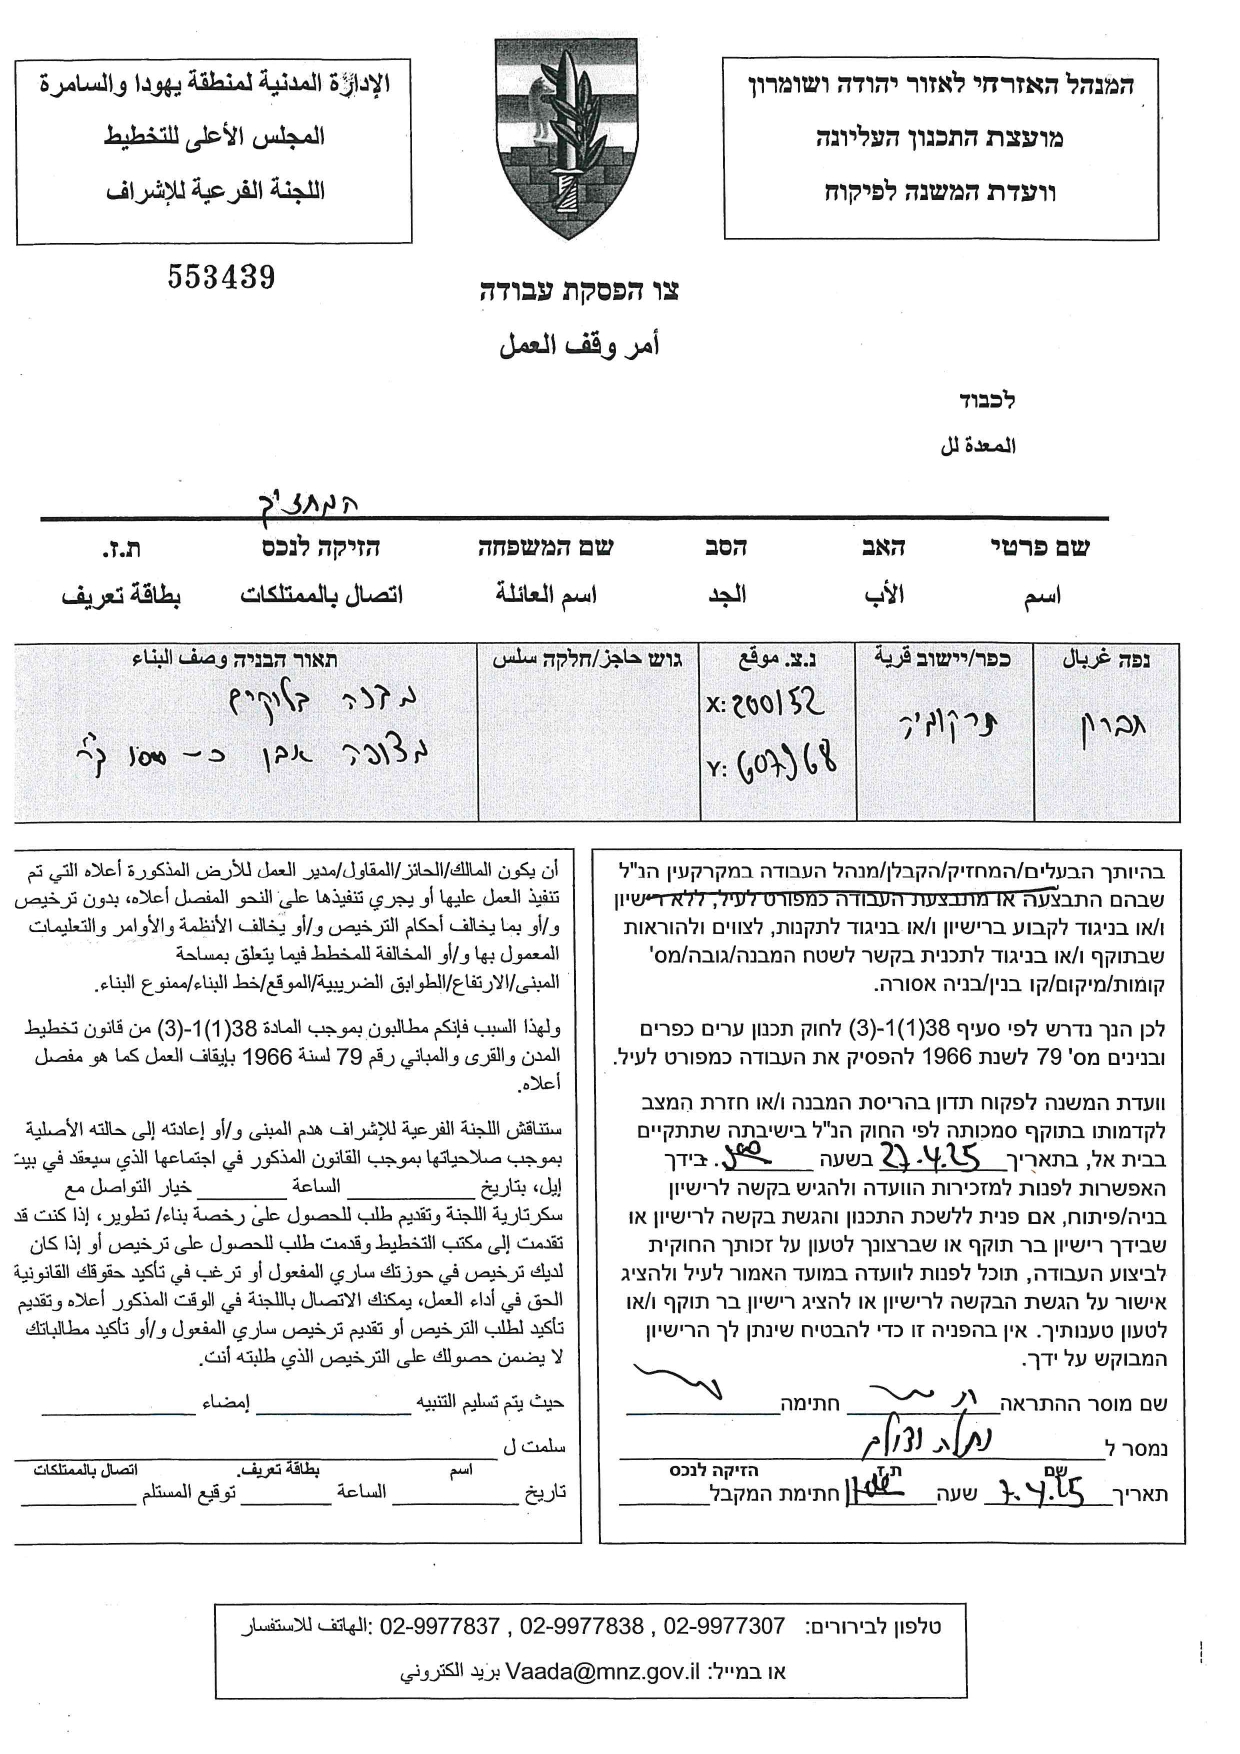 המנהל האזרחי לאזור יהודה ושומרון
מועצת התכנון העליונה
וועדת המשנה לפיקוח
الإدارة المدنية لمنطقة يهودا والسامرة
المجلس الأعلى للتخطيط
اللجنة الفرعية للإشراف
553439
צו הפסקת עבודה
أمر وقف العمل
לכבוד
المعدة لل
המחזיק
שם פרטי האב הסב שם המשפחה הזיקה לנכס ת.ז.
اسم الأب الجد اسم العائلة اتصال بالممتلكات بطاقة تعريف
נפה غربال כפר/יישוב قرية נ.צ. موقع גוש حاجز/חלקה سلس תאור הבניה وصف البناء
חברון תרקומיה X: 200152 מבנה בלוקים
Y: 607968 מצופה אבן כ-
בהיותך הבעלים/המחזיק/הקבלן/מנהל העבודה במקרקעין הנ"ל
שבהם התבצעה או מתבצעת העבודה כמפורט לעיל, ללא רישיון
ו/או בניגוד לקבוע ברישיון ו/או בניגוד לתקנות, לצווים ולהוראות
שבתוקף ו/או בניגוד לתכנית בקשר לשטח המבנה/גובה/מס'
קומות/מיקום/קו בנין/בניה אסורה.
לכן הנך נדרש לפי סעיף 38(1)-(3) לחוק תכנון ערים כפרים
ובנינים מס' 79 לשנת 1966 להפסיק את העבודה כמפורט לעיל.
וועדת המשנה לפקוח תדון בהריסת המבנה ו/או חזרת המצב
לקדמותו בתוקף סמכותה לפי החוק הנ"ל בישיבתה שתתקיים
בבית אל, בתאריך 27.4.25 בשעה . בידך
האפשרות לפנות למזכירות הוועדה ולהגיש בקשה לרישיון
בניה/פיתוח, אם פנית ללשכת התכנון והגשת בקשה לרישיון או
שבידך רישיון בר תוקף או שברצונך לטעון על זכותך החוקית
לביצוע העבודה, תוכל לפנות לוועדה במועד האמור לעיל ולהציג
אישור על הגשת הבקשה לרישיון או להציג רישיון בר תוקף ו/או
לטעון טענותיך. אין בהפניה זו כדי להבטיח שינתן לך הרישיון
המבוקש על ידך.
שם מוסר ההתראה חתימה
נמסר ל
שם ת.ז הזיקה לנכס
תאריך 7.4.25 שעה חתימת המקבל
أن يكون المالك/الحائز/المقاول/مدير العمل للأرض المذكورة أعلاه التي تم
تنفيذ العمل عليها أو يجري تنفيذها على النحو المفصل أعلاه، بدون ترخيص
و/أو بما يخالف أحكام الترخيص و/أو يخالف الأنظمة والأوامر والتعليمات
المعمول بها و/أو المخالفة للمخطط فيما يتعلق بمساحة
المبنى/الارتفاع/الطوابق الضريبية/الموقع/خط البناء/ممنوع البناء.
ولهذا السبب فإنكم مطالبون بموجب المادة 38(1)-(3) من قانون تخطيط
المدن والقرى والمباني رقم 79 لسنة 1966 بإيقاف العمل كما هو مفصل
أعلاه.
ستناقش اللجنة الفرعية للإشراف هدم المبنى و/أو إعادته إلى حالته الأصلية
بموجب صلاحياتها بموجب القانون المذكور في اجتماعها الذي سيعقد في بيت
إيل، بتاريخ الساعة خيار التواصل مع
سكرتارية اللجنة وتقديم طلب للحصول على رخصة بناء/ تطوير، إذا كنت قد
تقدمت إلى مكتب التخطيط وقدمت طلب للحصول على ترخيص أو إذا كان
لديك ترخيص في حوزتك ساري المفعول أو ترغب في تأكيد حقوقك القانونية
الحق في أداء العمل، يمكنك الاتصال باللجنة في الوقت المذكور أعلاه وتقديم
تأكيد لطلب الترخيص أو تقديم ترخيص ساري المفعول و/أو تأكيد مطالباتك
لا يضمن حصولك على الترخيص الذي طلبته أنت.
حيث يتم تسليم التنبيه إمضاء
سلمت ل
اسم بطاقة تعريف. اتصال بالممتلكات
تاريخ الساعة توقيع المستلم
טלפון לבירורים: 02-9977307 , 02-9977838 , 02-9977837 :الهاتف للاستفسار
או במייל: Vaada@mnz.gov.il بريد الكتروني